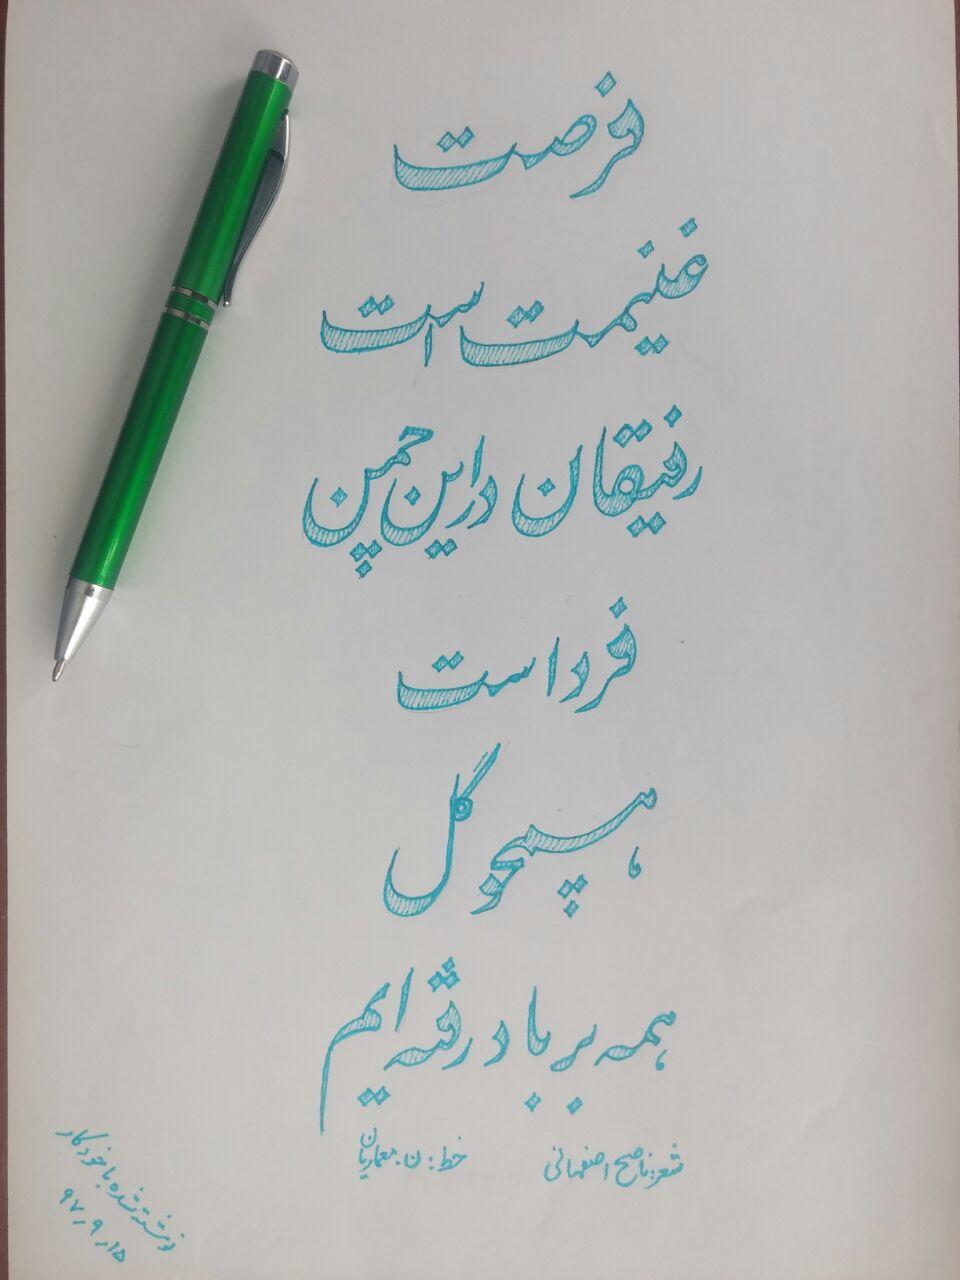 فرصت
غنیمت است
رفیقان در این چمن
فردا است
همچو گل
همه بر باد رفته ایم
شعر: ناصح اصفهانی
خط: ن. معماریان
نوشته شده با خودکار
۹۷٫۹٫۱۵